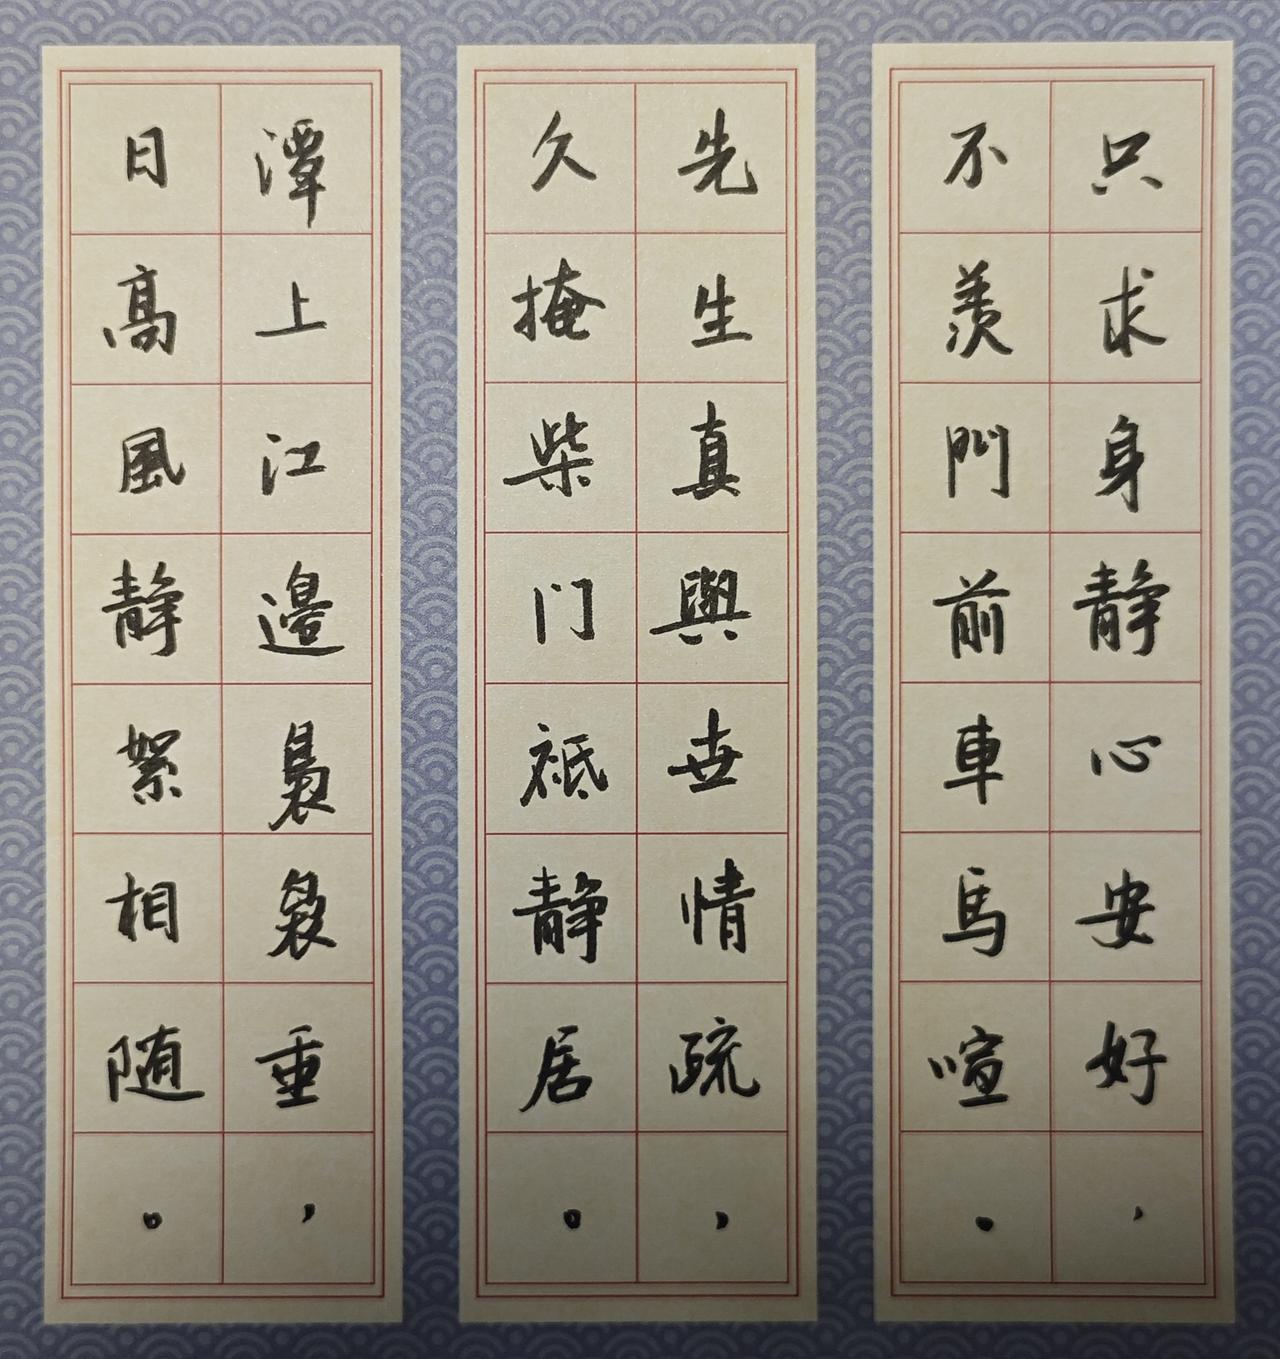 只求身静心安好，
不羨門前車馬喧。
先生真與世情疏，
久掩柴门祗静居。
潭上江邊裊裊垂，
日高風静絮相随。